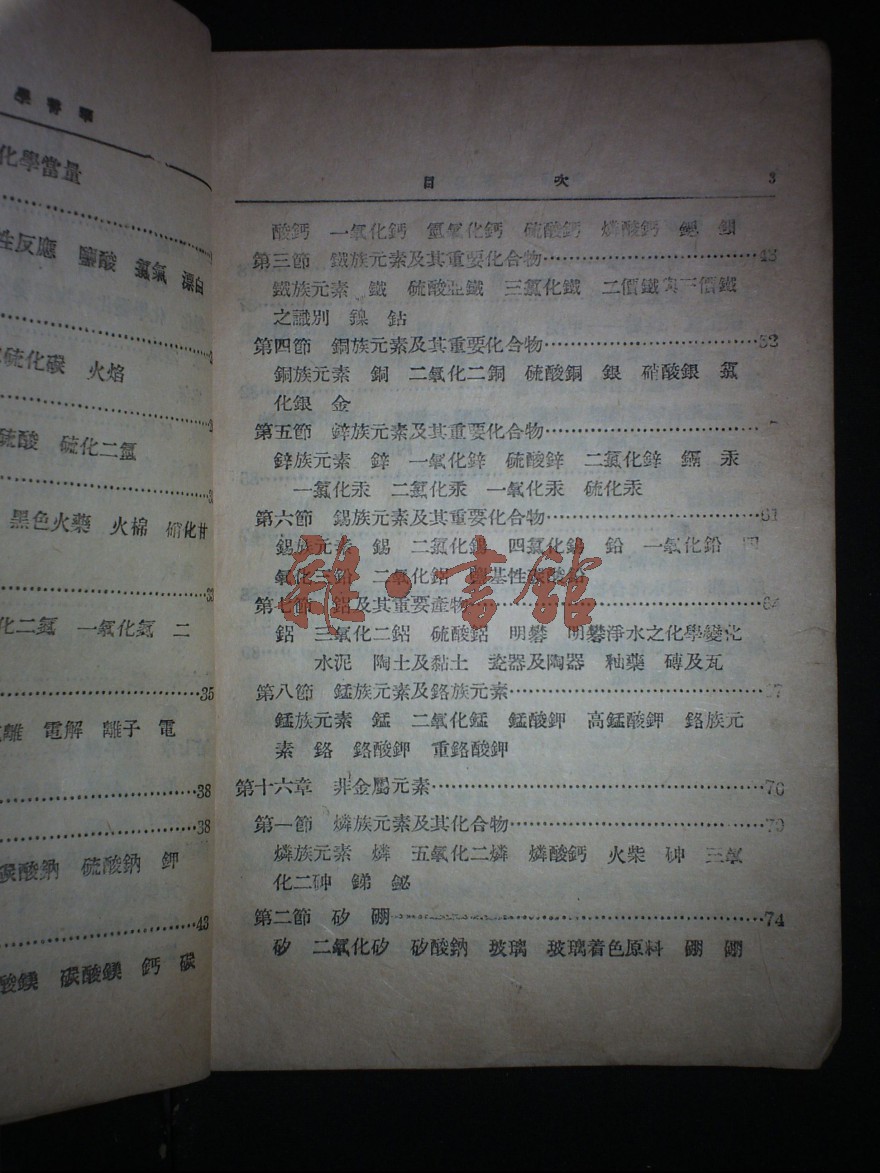 化學當量
性反應　鹽酸　氯氣　漂白
硫化碳　火焰
硫酸　硫化二氫
黑色火藥　火棉　硝化甘
化二氮　一氧化氮　二
35
離　電解　離子　電
38
38
碳酸鈉　硫酸鈉　鉀
43
酸鎂　碳酸鎂　鈣　碳
目　次　3
酸鈣　一氧化鈣　氫氧化鈣　硫酸鈣　燐酸鈣　鍶　鋇
第三節　鐵族元素及其重要化合物
鐵族元素　鐵　硫酸亞鐵　三氯化鐵　二價鐵與三價鐵
之識別　鎳　鈷
第四節　銅族元素及其重要化合物
銅族元素　銅　二氧化二銅　硫酸銅　銀　硝酸銀　氯
化銀　金
第五節　鋅族元素及其重要化合物
鋅族元素　鋅　一氧化鋅　硫酸鋅　二氯化鋅　鎘　汞
一氯化汞　二氯化汞　一氧化汞　硫化汞
第六節　錫族元素及其重要化合物
錫族元素　錫　二氯化錫　四氯化錫　鉛　一氧化鉛　四
氧化三鉛　二氧化鉛　鹽基性碳酸鉛
雜·書館
第七節　鋁及其重要產物
鋁　三氧化二鋁　硫酸鋁　明礬　明礬淨水之化學變化
水泥　陶土及黏土　瓷器及陶器　釉藥　磚及瓦
第八節　錳族元素及鉻族元素
錳族元素　錳　二氧化錳　錳酸鉀　高錳酸鉀　鉻族元
素　鉻　鉻酸鉀　重鉻酸鉀
第十六章　非金屬元素
第一節　燐族元素及其化合物
燐族元素　燐　五氧化二燐　燐酸鈣　火柴　砷　三氧
化二砷　銻　鉍
第二節　矽　硼……74
矽　二氧化矽　矽酸鈉　玻璃　玻璃着色原料　硼　硼